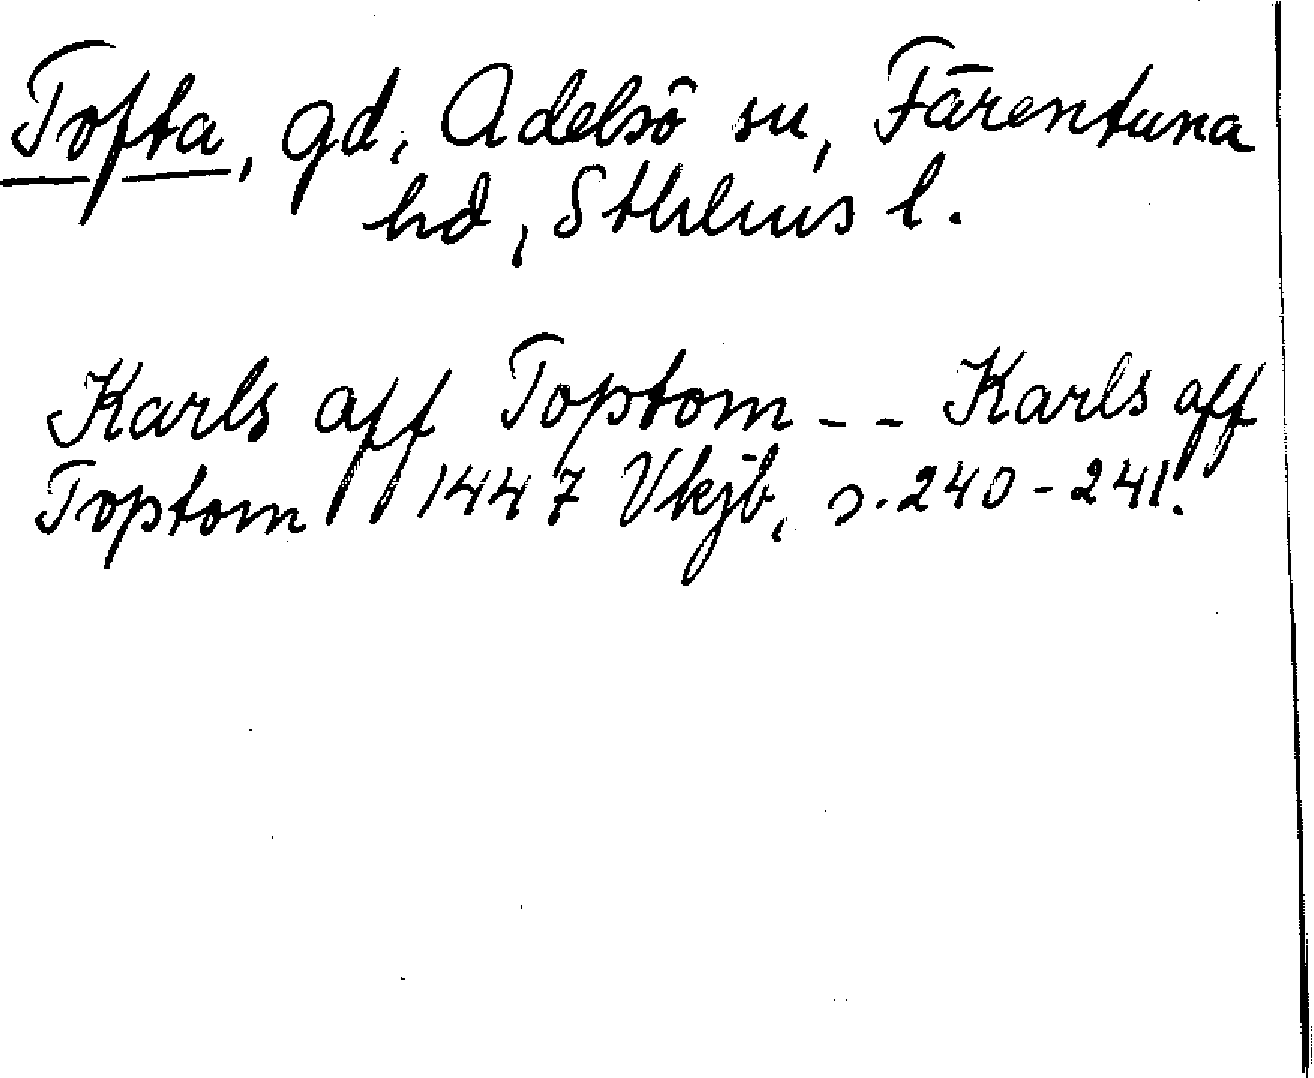 Tofta, gd, Adelsö sn, Färentuna
hd, Sthlms l.
Karls aff Toptom - - Karls aff
Toptom 1447 Vkjb, s. 240-241.